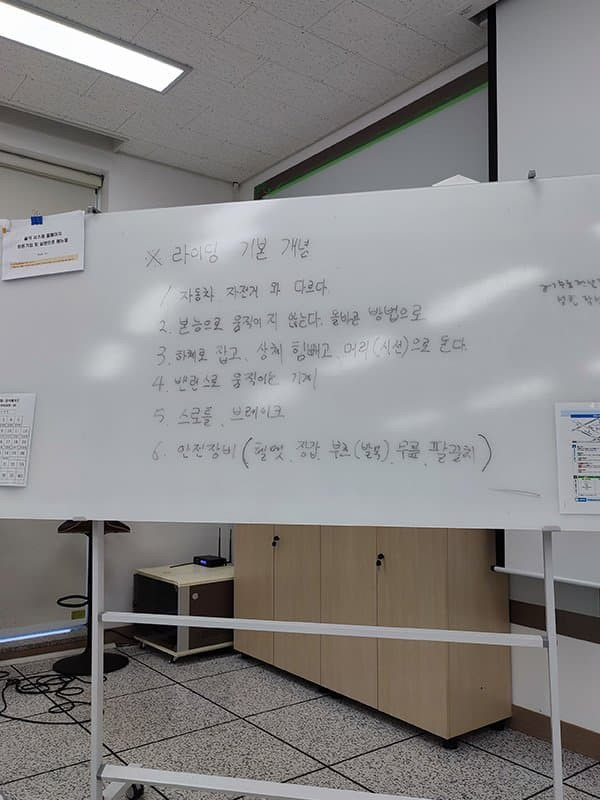 ※ 라이딩 기본 개념
1. 자동차 자전거 와 다르다.
2. 본능으로 움직이지 않는다. 올바른 방법으로
3. 하체로 잡고, 상체 힘빼고, 머리(시선)으로 돈다.
4. 밴런스로 움직이는 기계
5. 스로틀, 브레이크
6. 안전장비 (헬멧, 장갑, 부츠(발목), 무릎, 팔꿈치)